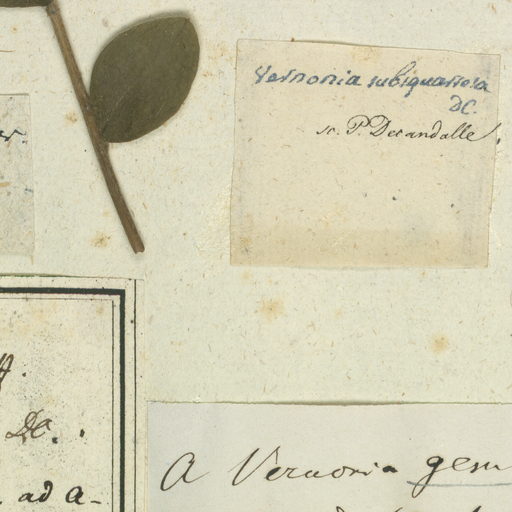 Vernonia subsquarrosa
DC.
sc. P. Decandalle.
DC.
ad a-
A Vernonia gem